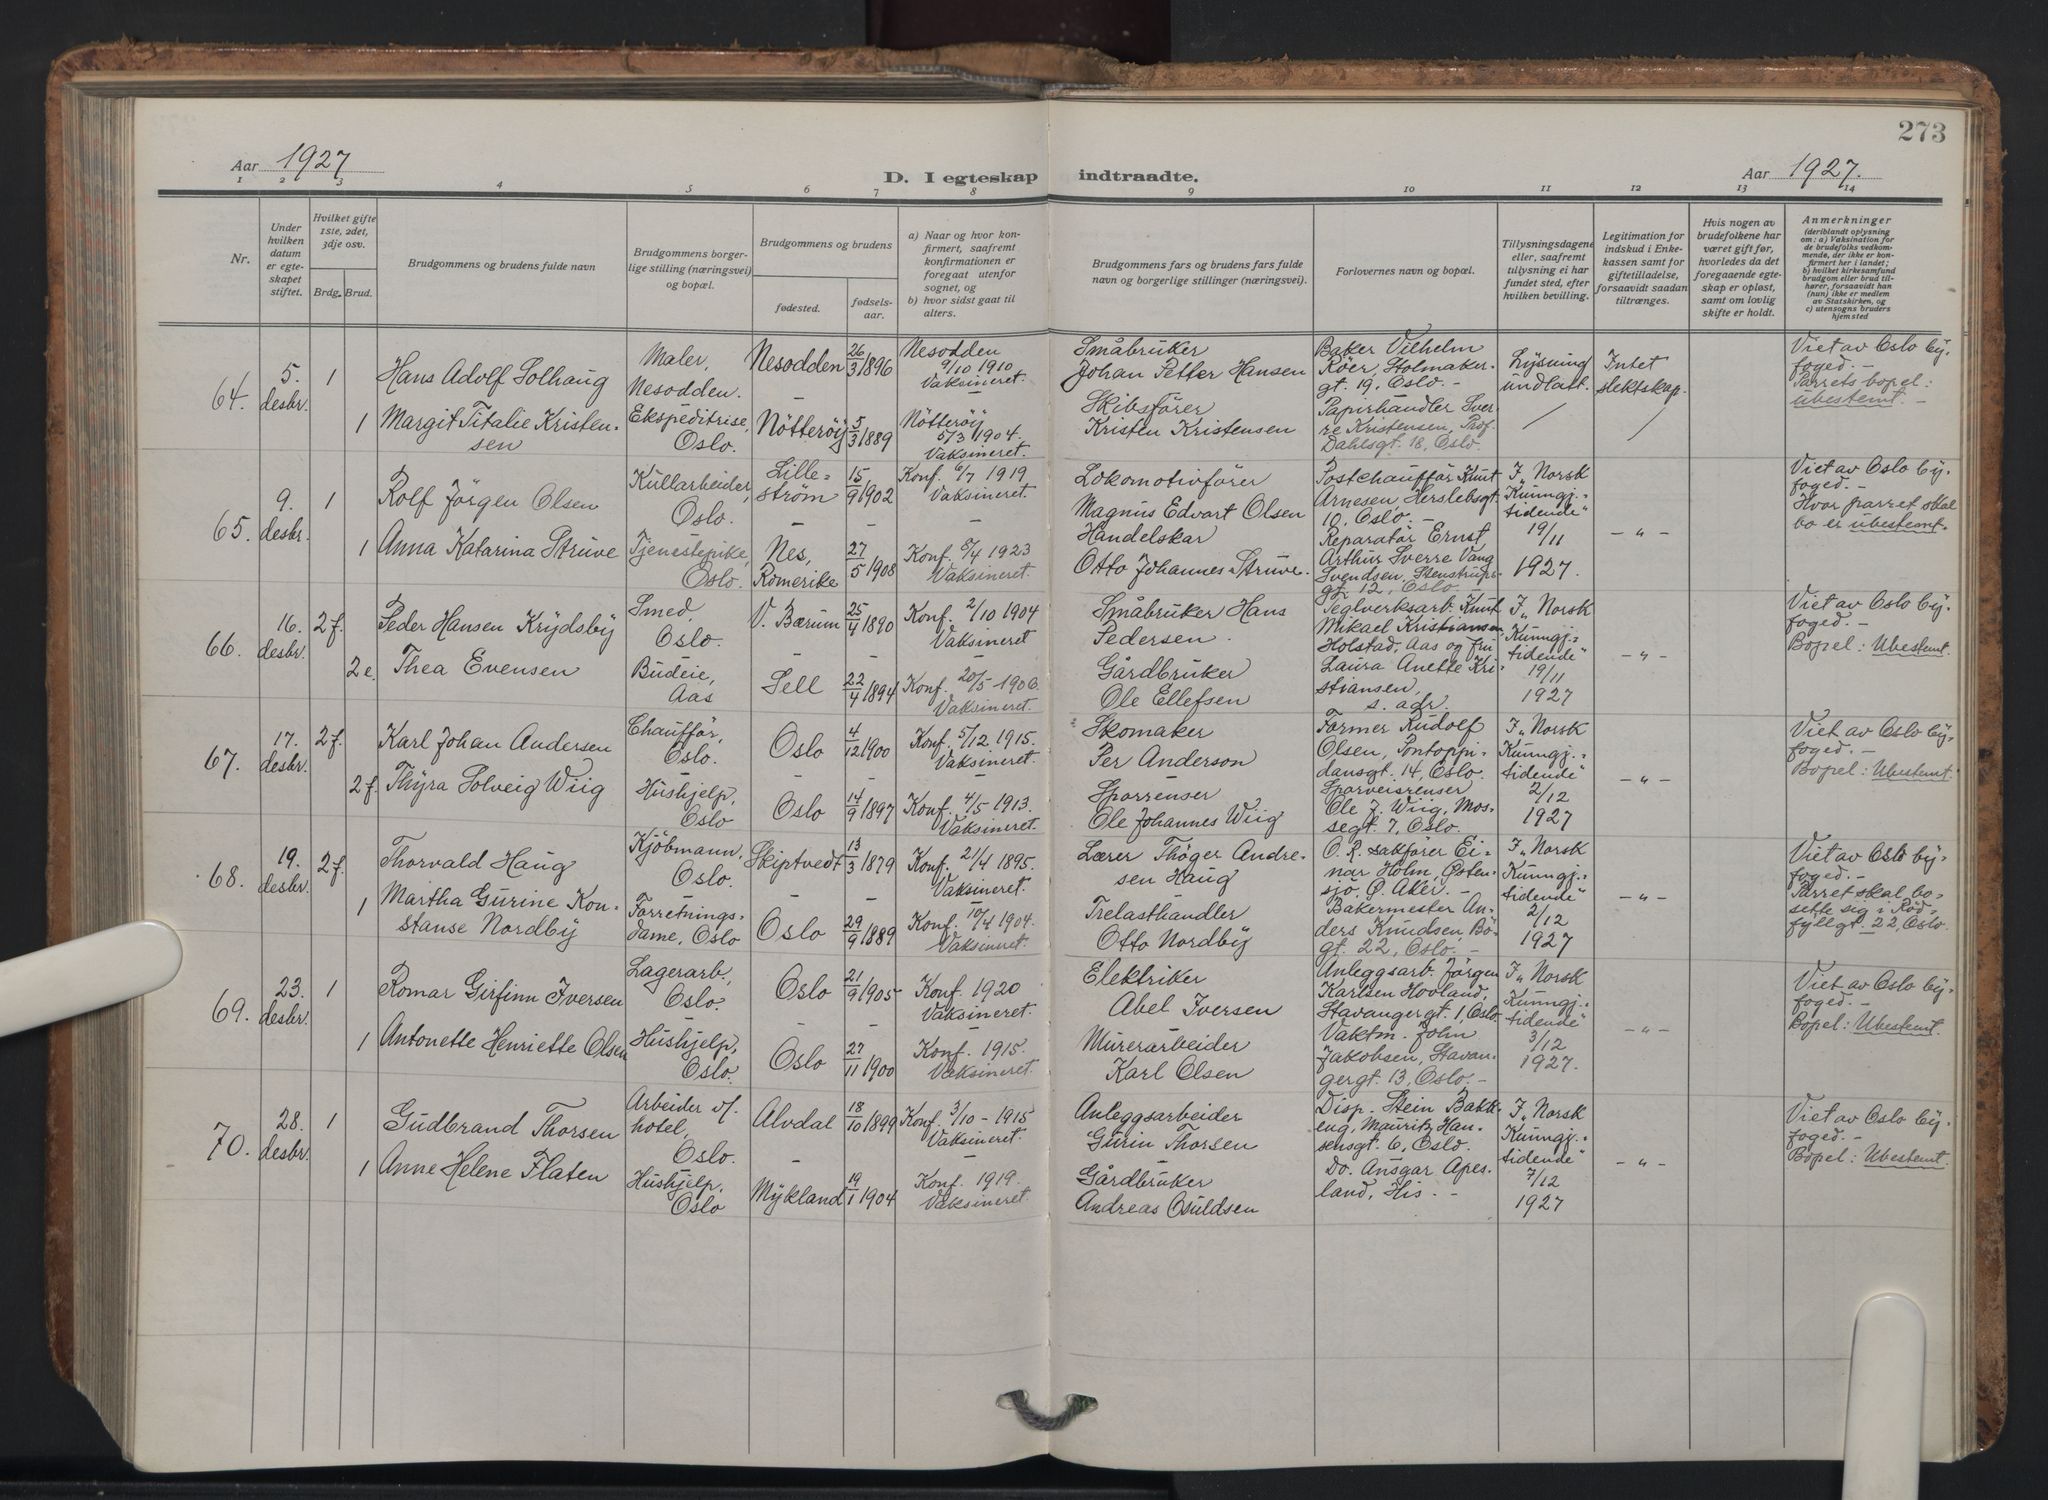 273
Aar 1927
D. I egteskap indtraadte.
Aar 1927.
1 2 3 4 5 6 7 8 9 10 11 12 13 14
Nr.
Under hvilken datum er egteskapet stiftet.
Hvilket gifte 1ste, 2det, 3dje osv.
Brdg. Brud.
Brudgommens og brudens fulde navn
Brudgommens borgerlige stilling (næringsvei) og bopæl.
Brudgommens og brudens
fødested.
fødselsaar.
a) Naar og hvor konfirmert, saafremt konfirmationen er foregaat utenfor sognet, og
b) hvor sidst gaat til alters.
Brudgommens fars og brudens fars fulde navn og borgerlige stillinger (næringsvei).
Forlovernes navn og bopæl.
Tillysningsdagene eller, saafremt tillysning ei har fundet sted, efter hvilken bevilling.
Legitimation for indskud i Enkekassen samt for giftetilladelse, forsaavidt saadan tiltrænges.
Hvis nogen av brudefolkene har været gift før, hvorledes da det foregaaende egteskap er opløst, samt om lovlig skifte er holdt.
Anmerkninger
(deriblandt oplysning om: a) Vaksination for de brudefolks vedkommende, der ikke er konfirmert her i landet; b) hvilket kirkesamfund brudgom eller brud tilhører, forsaavidt han (hun) ikke er medlem av Statskirken, og c) utensogns bruders hjemsted
64. 5. desbr. 1
Hans Adolf Solhaug
Maler, Nesodden.
Nesodden 26/3 1896
Nesodden 9/10 1910 Vaksineret.
Småbruker Johan Petter Hansen
Baker Vilhelm Röer, Stolmakergt. 19, Oslo. -
Lysning undlatt.
Intet slektskap.
Viet av Oslo byfoged. - Parrets bopel: ubestemt. -
1 Margit Titalie Kristensen
Ekspeditrise, Oslo.
Nötteröy 5/3 1889
Nötteröy 5/3 1904. Vaksineret.
Skibsförer Kristen Kristensen
Papirhandler Sverre Kristensen, Prof. Dahlsgt. 18, Oslo.
65. 9. desbr. 1
Rolf Jörgen Olsen
Kullarbeider, Oslo.
Lilleström 15/9 1902
Konf. 6/7 1919 Vaksineret.
Lokomotivförer Magnus Edvart Olsen
Postchaufför Knut Arnesen, Herslebsgt. 10, Oslo. -
I „Norsk Kunngj.-tidende“ 19/11 1927.
- „ -
Viet av Oslo byfoged. - Hvor parret skal bo er ubestemt.
1 Anna Katarina Struve
Tjenestepike, Oslo.
Nes, Romerike 27/5 1908
Konf. 8/4 1923 Vaksineret.
Handelskar Otto Johannes Struve.
Reparatör Ernst Arthur Sverre Vang Svendsen, Stenstrupsgt. 12, Oslo
66. 16. desbr. 2 f.
Peder Hansen Krydsby
Smed, Oslo.
V. Bærum 25/4 1890
Konf. 2/10 1904 Vaksineret
Småbruker Hans Pedersen.
Teglverksarb. Knut Mikael Kristiansen Holstad, Aas og fru Laura Anette Kristiansen, s. adr.
I „Norsk Kunngj.-tidende“ 19/11 1927
- „ -
Viet av Oslo byfoged. - Bopel: Ubestemt.
2 e. Thea Evensen
Budeie, Aas
Sell 22/4 1894
Konf. 20/5 - 1906. Vaksineret.
Gårdbruker Ole Ellefsen
67. 17. desbr. 2 f.
Karl Johan Andersen
Chaufför, Oslo.
Oslo 4/12 1900
Konf. 5/12 1915. Vaksineret.
Skomaker Per Anderson
Former Rudolf Olsen, Pontoppidansgt. 14, Oslo.
I „Norsk Kunngj.-tidende“ 2/12 1927
- „ -
Viet av Oslo byfoged. - Bopel: Ubestemt.
2 f. Thyra Solveig Wiig
Hushjelp, Oslo
Oslo 14/9 1897
Konf. 4/5 1913. Vaksineret.
Sporrenser Ole Johannes Wiig
Sporveisrenser Ole J. Wiig, Mossegt. 7, Oslo.
68. 19. desbr. 2 f.
Thorvald Haug
Kjöbmann, Oslo.
Skiptvedt 13/3 1879
Konf. 21/4 1895. Vaksineret.
Lærer Thöger Andresen Haug
O. R. sakförer Einar Holm, Östensjö, Ö. Aker. -
I „Norsk Kunngj.-tidende“ 2/12 1927
- „ -
Viet av Oslo byfoged. - Parret skal bosette sig i Rödfyllgt. 22, Oslo.
1 Martha Gurine Konstanse Nordby
Forretningsdame, Oslo
Oslo 29/9 1889
Konf. 10/4 1904. Vaksineret.
Trelasthandler Otto Nordby
Bakermester Anders Knudsen, Bögt. 22, Oslo. -
69. 23. desbr. 1
Romar Girfinn Iversen
Lagerarb., Oslo.
Oslo 21/9 1905
Konf. 1920 Vaksineret.
Elektriker Abel Iversen
Anleggsarb. Jörgen Karlsen Hovland, Stavangergt. 1, Oslo.
I „Norsk Kunngj.-tidende“ 3/12 1927.
- „ -
Viet av Oslo byfoged. - Bopel: Ubestemt.
1 Antonette Henriette Olsen
Hushjelp, Oslo.
Oslo 27/11 1900
Konf. 1915. Vaksineret.
Murerarbeider Karl Olsen
Vaktm. John Jakobsen, Stavangergt. 13, Oslo. -
70. 28. desbr. 1
Gudbrand Thorsen
Arbeider v/ hotel, Oslo.
Alvdal 18/10 1899
Konf. 3/10 - 1915 Vaksineret.
Anleggsarbeider Gurin Thorsen
Disp. Stein Bakkeng, Mauritz Hansensgt. 6, Oslo.
I „Norsk Kunngj.-tidende“ 7/12 1927
- „ -
Viet av Oslo byfoged. - Bopel: Ubestemt.
1 Anne Helene Flaten
Hushjelp, Oslo
Mykland 19/1 1904
Konf. 1919. Vaksineret.
Gårdbruker Andreas Osuldsen
Do. Ansgar Apesland, His. -